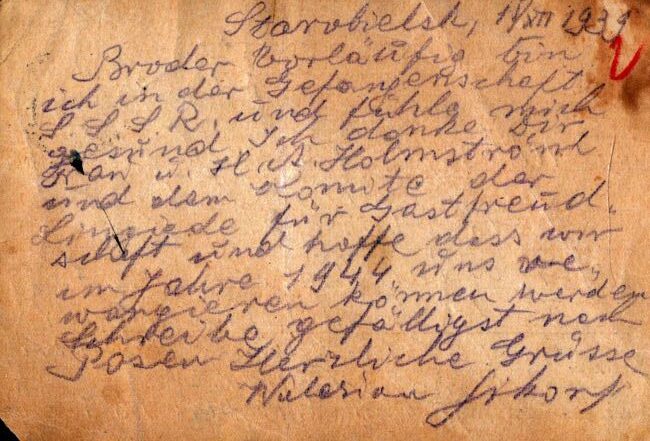 Starobielsk, 1 XII 1939
Broder Vorläufig bin
ich in der Gefangenschaft
SSSR, und fühle mich
gesund Ich danke Dir
Frau u. H. A. Holmström
und dem Komite der
Lingiade für Gastfreud.
schaft und hoffe dass wir
im Jahre 1944 uns
wangieren können werden
Schreibe gefälligst nach
Posen Herzliche Grüsse
Walerian Sikorsk